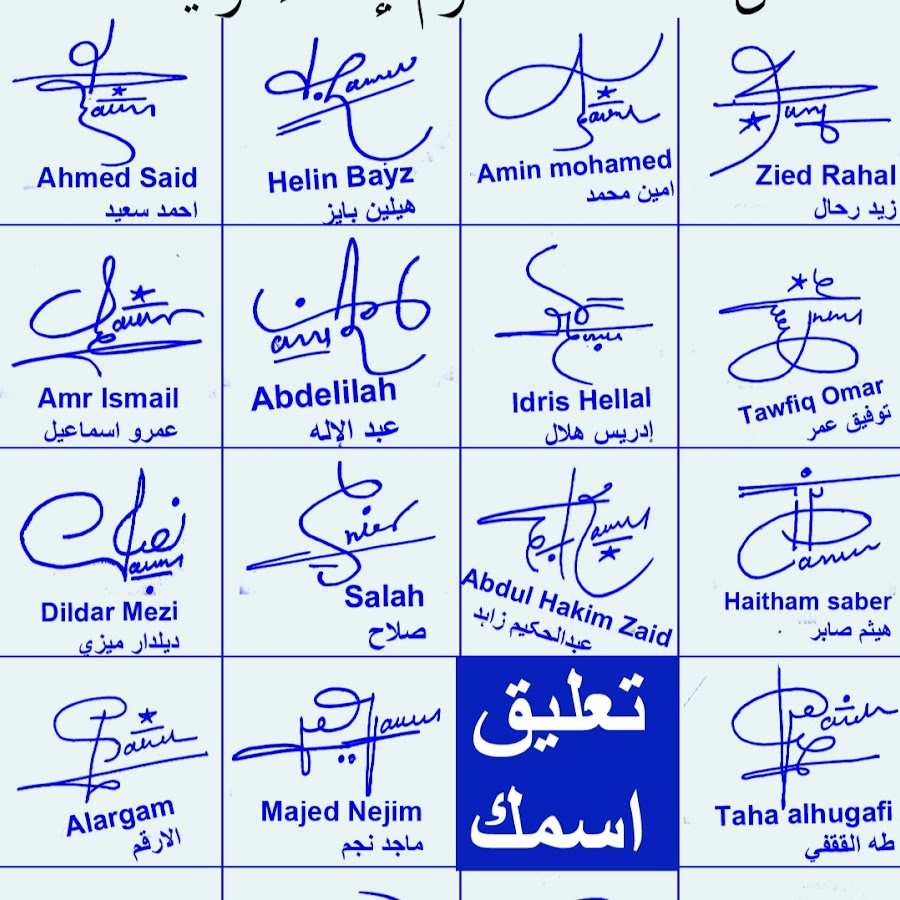 Ahmed Said
احمد سعيد
Helin Bayz
هيلين بايز
Amin mohamed
امين محمد
Zied Rahal
زيد رحال
Amr Ismail
عمرو اسماعيل
Abdelilah
عبد الإله
Idris Hellal
إدريس هلال
Tawfiq Omar
توفيق عمر
Dildar Mezi
ديلدار ميزي
Salah
صلاح
Abdul Hakim Zaid
عبدالحكيم زايد
Haitham saber
هيثم صابر
Alargam
الارقم
Majed Nejim
ماجد نجم
تعليق
اسمك
Taha alhugafi
طه القفقي